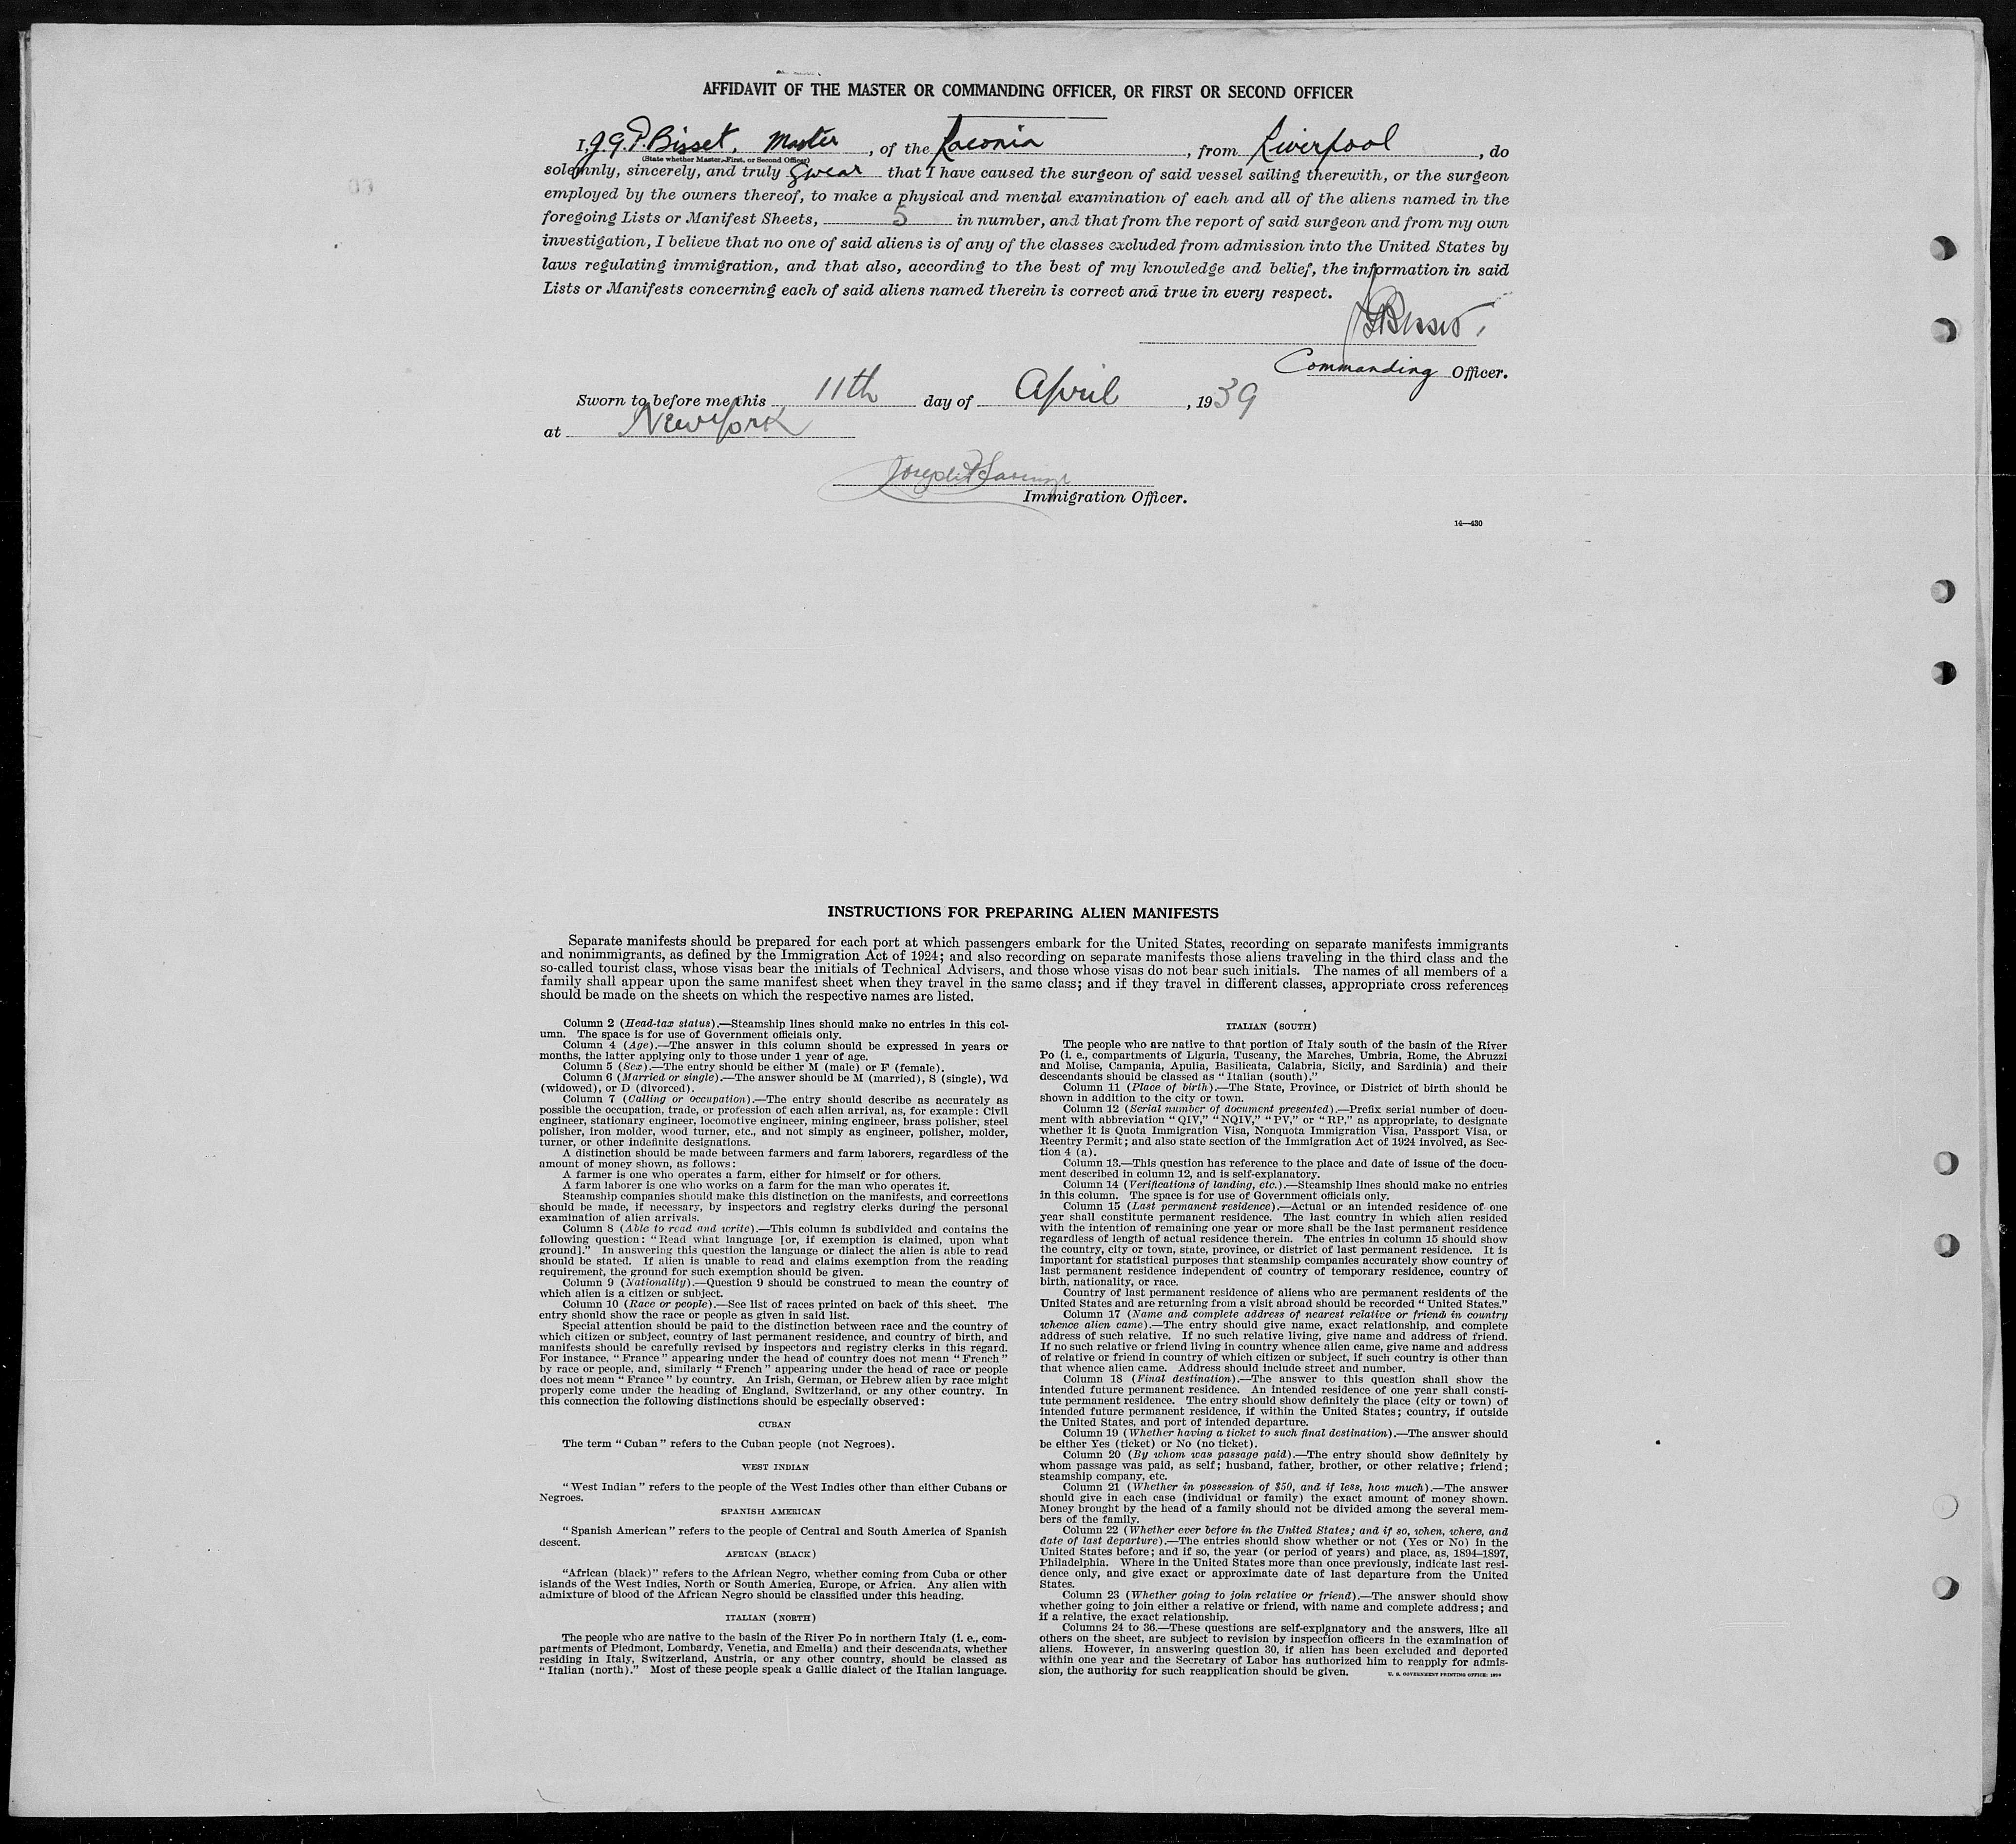 AFFIDAVIT OF THE MASTER OR COMMANDING OFFICER, OR FIRST OR SECOND OFFICER
I, J.G.P. Bisset, Master, of the Laconia, from Liverpool, do
(State whether Master, First, or Second Officer)
solemnly, sincerely, and truly swear that I have caused the surgeon of said vessel sailing therewith, or the surgeon
employed by the owners thereof, to make a physical and mental examination of each and all of the aliens named in the
foregoing Lists or Manifest Sheets, 5 in number, and that from the report of said surgeon and from my own
investigation, I believe that no one of said aliens is of any of the classes excluded from admission into the United States by
laws regulating immigration, and that also, according to the best of my knowledge and belief, the information in said
Lists or Manifests concerning each of said aliens named therein is correct and true in every respect.
Bisset
Commanding Officer.
Sworn to before me this 11th day of April, 1939
at New York
Joseph
Immigration Officer.
14—430
INSTRUCTIONS FOR PREPARING ALIEN MANIFESTS
Separate manifests should be prepared for each port at which passengers embark for the United States, recording on separate manifests immigrants
and nonimmigrants, as defined by the Immigration Act of 1924; and also recording on separate manifests those aliens traveling in the third class and the
so-called tourist class, whose visas bear the initials of Technical Advisers, and those whose visas do not bear such initials. The names of all members of a
family shall appear upon the same manifest sheet when they travel in the same class; and if they travel in different classes, appropriate cross references
should be made on the sheets on which the respective names are listed.
Column 2 (Head-tax status).—Steamship lines should make no entries in this col-
umn. The space is for use of Government officials only.
Column 4 (Age).—The answer in this column should be expressed in years or
months, the latter applying only to those under 1 year of age.
Column 5 (Sex).—The entry should be either M (male) or F (female).
Column 6 (Married or single).—The answer should be M (married), S (single), Wd
(widowed), or D (divorced).
Column 7 (Calling or occupation).—The entry should describe as accurately as
possible the occupation, trade, or profession of each alien arrival, as, for example: Civil
engineer, stationary engineer, locomotive engineer, mining engineer, brass polisher, steel
polisher, iron molder, wood turner, etc., and not simply as engineer, polisher, molder,
turner, or other indefinite designations.
A distinction should be made between farmers and farm laborers, regardless of the
amount of money shown, as follows:
A farmer is one who operates a farm, either for himself or for others.
A farm laborer is one who works on a farm for the man who operates it.
Steamship companies should make this distinction on the manifests, and corrections
should be made, if necessary, by inspectors and registry clerks during the personal
examination of alien arrivals.
Column 8 (Able to read and write).—This column is subdivided and contains the
following question: "Read what language [or, if exemption is claimed, upon what
ground]." In answering this question the language or dialect the alien is able to read
should be stated. If alien is unable to read and claims exemption from the reading
requirement, the ground for such exemption should be given.
Column 9 (Nationality).—Question 9 should be construed to mean the country of
which alien is a citizen or subject.
Column 10 (Race or people).—See list of races printed on back of this sheet. The
entry should show the race or people as given in said list.
Special attention should be paid to the distinction between race and the country of
which citizen or subject, country of last permanent residence, and country of birth, and
manifests should be carefully revised by inspectors and registry clerks in this regard.
For instance, "France" appearing under the head of country does not mean "French"
by race or people, and, similarly "French" appearing under the head of race or people
does not mean "France" by country. An Irish, German, or Hebrew alien by race might
properly come under the heading of England, Switzerland, or any other country. In
this connection the following distinctions should be especially observed:
CUBAN
The term "Cuban" refers to the Cuban people (not Negroes).
WEST INDIAN
"West Indian" refers to the people of the West Indies other than either Cubans or
Negroes.
SPANISH AMERICAN
"Spanish American" refers to the people of Central and South America of Spanish
descent.
AFRICAN (BLACK)
"African (black)" refers to the African Negro, whether coming from Cuba or other
islands of the West Indies, North or South America, Europe, or Africa. Any alien with
admixture of blood of the African Negro should be classified under this heading.
ITALIAN (NORTH)
The people who are native to the basin of the River Po in northern Italy (i. e., com-
partments of Piedmont, Lombardy, Venetia, and Emelia) and their descendants, whether
residing in Italy, Switzerland, Austria, or any other country, should be classed as
"Italian (north)." Most of these people speak a Gallic dialect of the Italian language.
ITALIAN (SOUTH)
The people who are native to that portion of Italy south of the basin of the River
Po (i. e., compartments of Liguria, Tuscany, the Marches, Umbria, Rome, the Abruzzi
and Molise, Campania, Apulia, Basilicata, Calabria, Sicily, and Sardinia) and their
descendants should be classed as "Italian (south)."
Column 11 (Place of birth).—The State, Province, or District of birth should be
shown in addition to the city or town.
Column 12 (Serial number of document presented).—Prefix serial number of docu-
ment with abbreviation "QIV," "NQIV," "PV," or "RP," as appropriate, to designate
whether it is Quota Immigration Visa, Nonquota Immigration Visa, Passport Visa, or
Reentry Permit; and also state section of the Immigration Act of 1924 involved, as Sec-
tion 4 (a).
Column 13.—This question has reference to the place and date of issue of the docu-
ment described in column 12, and is self-explanatory.
Column 14 (Verifications of landing, etc.).—Steamship lines should make no entries
in this column. The space is for use of Government officials only.
Column 15 (Last permanent residence).—Actual or an intended residence of one
year shall constitute permanent residence. The last country in which alien resided
with the intention of remaining one year or more shall be the last permanent residence
regardless of length of actual residence therein. The entries in column 15 should show
the country, city or town, state, province, or district of last permanent residence. It is
important for statistical purposes that steamship companies accurately show country of
last permanent residence independent of country of temporary residence, country of
birth, nationality, or race.
Country of last permanent residence of aliens who are permanent residents of the
United States and are returning from a visit abroad should be recorded "United States."
Column 17 (Name and complete address of nearest relative or friend in country
whence alien came).—The entry should give name, exact relationship, and complete
address of such relative. If no such relative living, give name and address of friend.
If no such relative or friend living in country whence alien came, give name and address
of relative or friend in country of which citizen or subject, if such country is other than
that whence alien came. Address should include street and number.
Column 18 (Final destination).—The answer to this question shall show the
intended future permanent residence. An intended residence of one year shall consti-
tute permanent residence. The entry should show definitely the place (city or town) of
intended future permanent residence, if within the United States; country, if outside
the United States, and port of intended departure.
Column 19 (Whether having a ticket to such final destination).—The answer should
be either Yes (ticket) or No (no ticket).
Column 20 (By whom was passage paid).—The entry should show definitely by
whom passage was paid, as self; husband, father, brother, or other relative; friend;
steamship company, etc.
Column 21 (Whether in possession of $50, and if less, how much).—The answer
should give in each case (individual or family) the exact amount of money shown.
Money brought by the head of a family should not be divided among the several mem-
bers of the family.
Column 22 (Whether ever before in the United States; and if so, when, where, and
date of last departure).—The entries should show whether or not (Yes or No) in the
United States before; and if so, the year (or period of years) and place, as, 1894–1897,
Philadelphia. Where in the United States more than once previously, indicate last resi-
dence only, and give exact or approximate date of last departure from the United
States.
Column 23 (Whether going to join relative or friend).—The answer should show
whether going to join either a relative or friend, with name and complete address; and
if a relative, the exact relationship.
Columns 24 to 36.—These questions are self-explanatory and the answers, like all
others on the sheet, are subject to revision by inspection officers in the examination of
aliens. However, in answering question 30, if alien has been excluded and deported
within one year and the Secretary of Labor has authorized him to reapply for admis-
sion, the authority for such reapplication should be given.
U. S. GOVERNMENT PRINTING OFFICE: